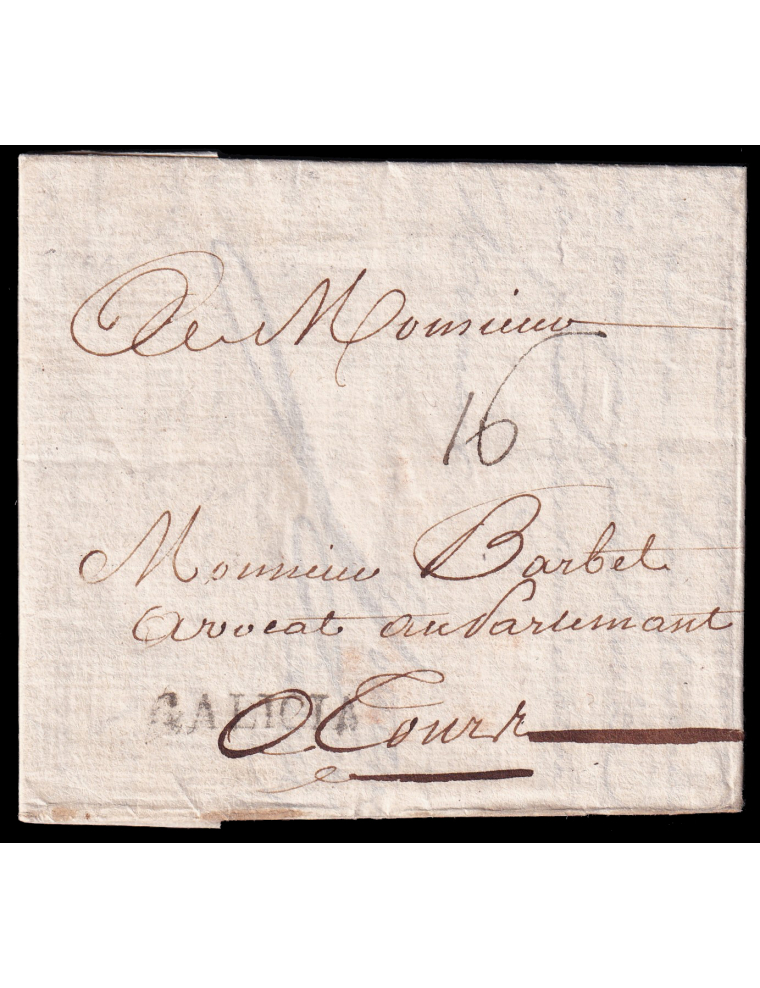 De Monsieur
16
Monsieur Barbet
Avocat au Parlemant
GALICIA
A Tours